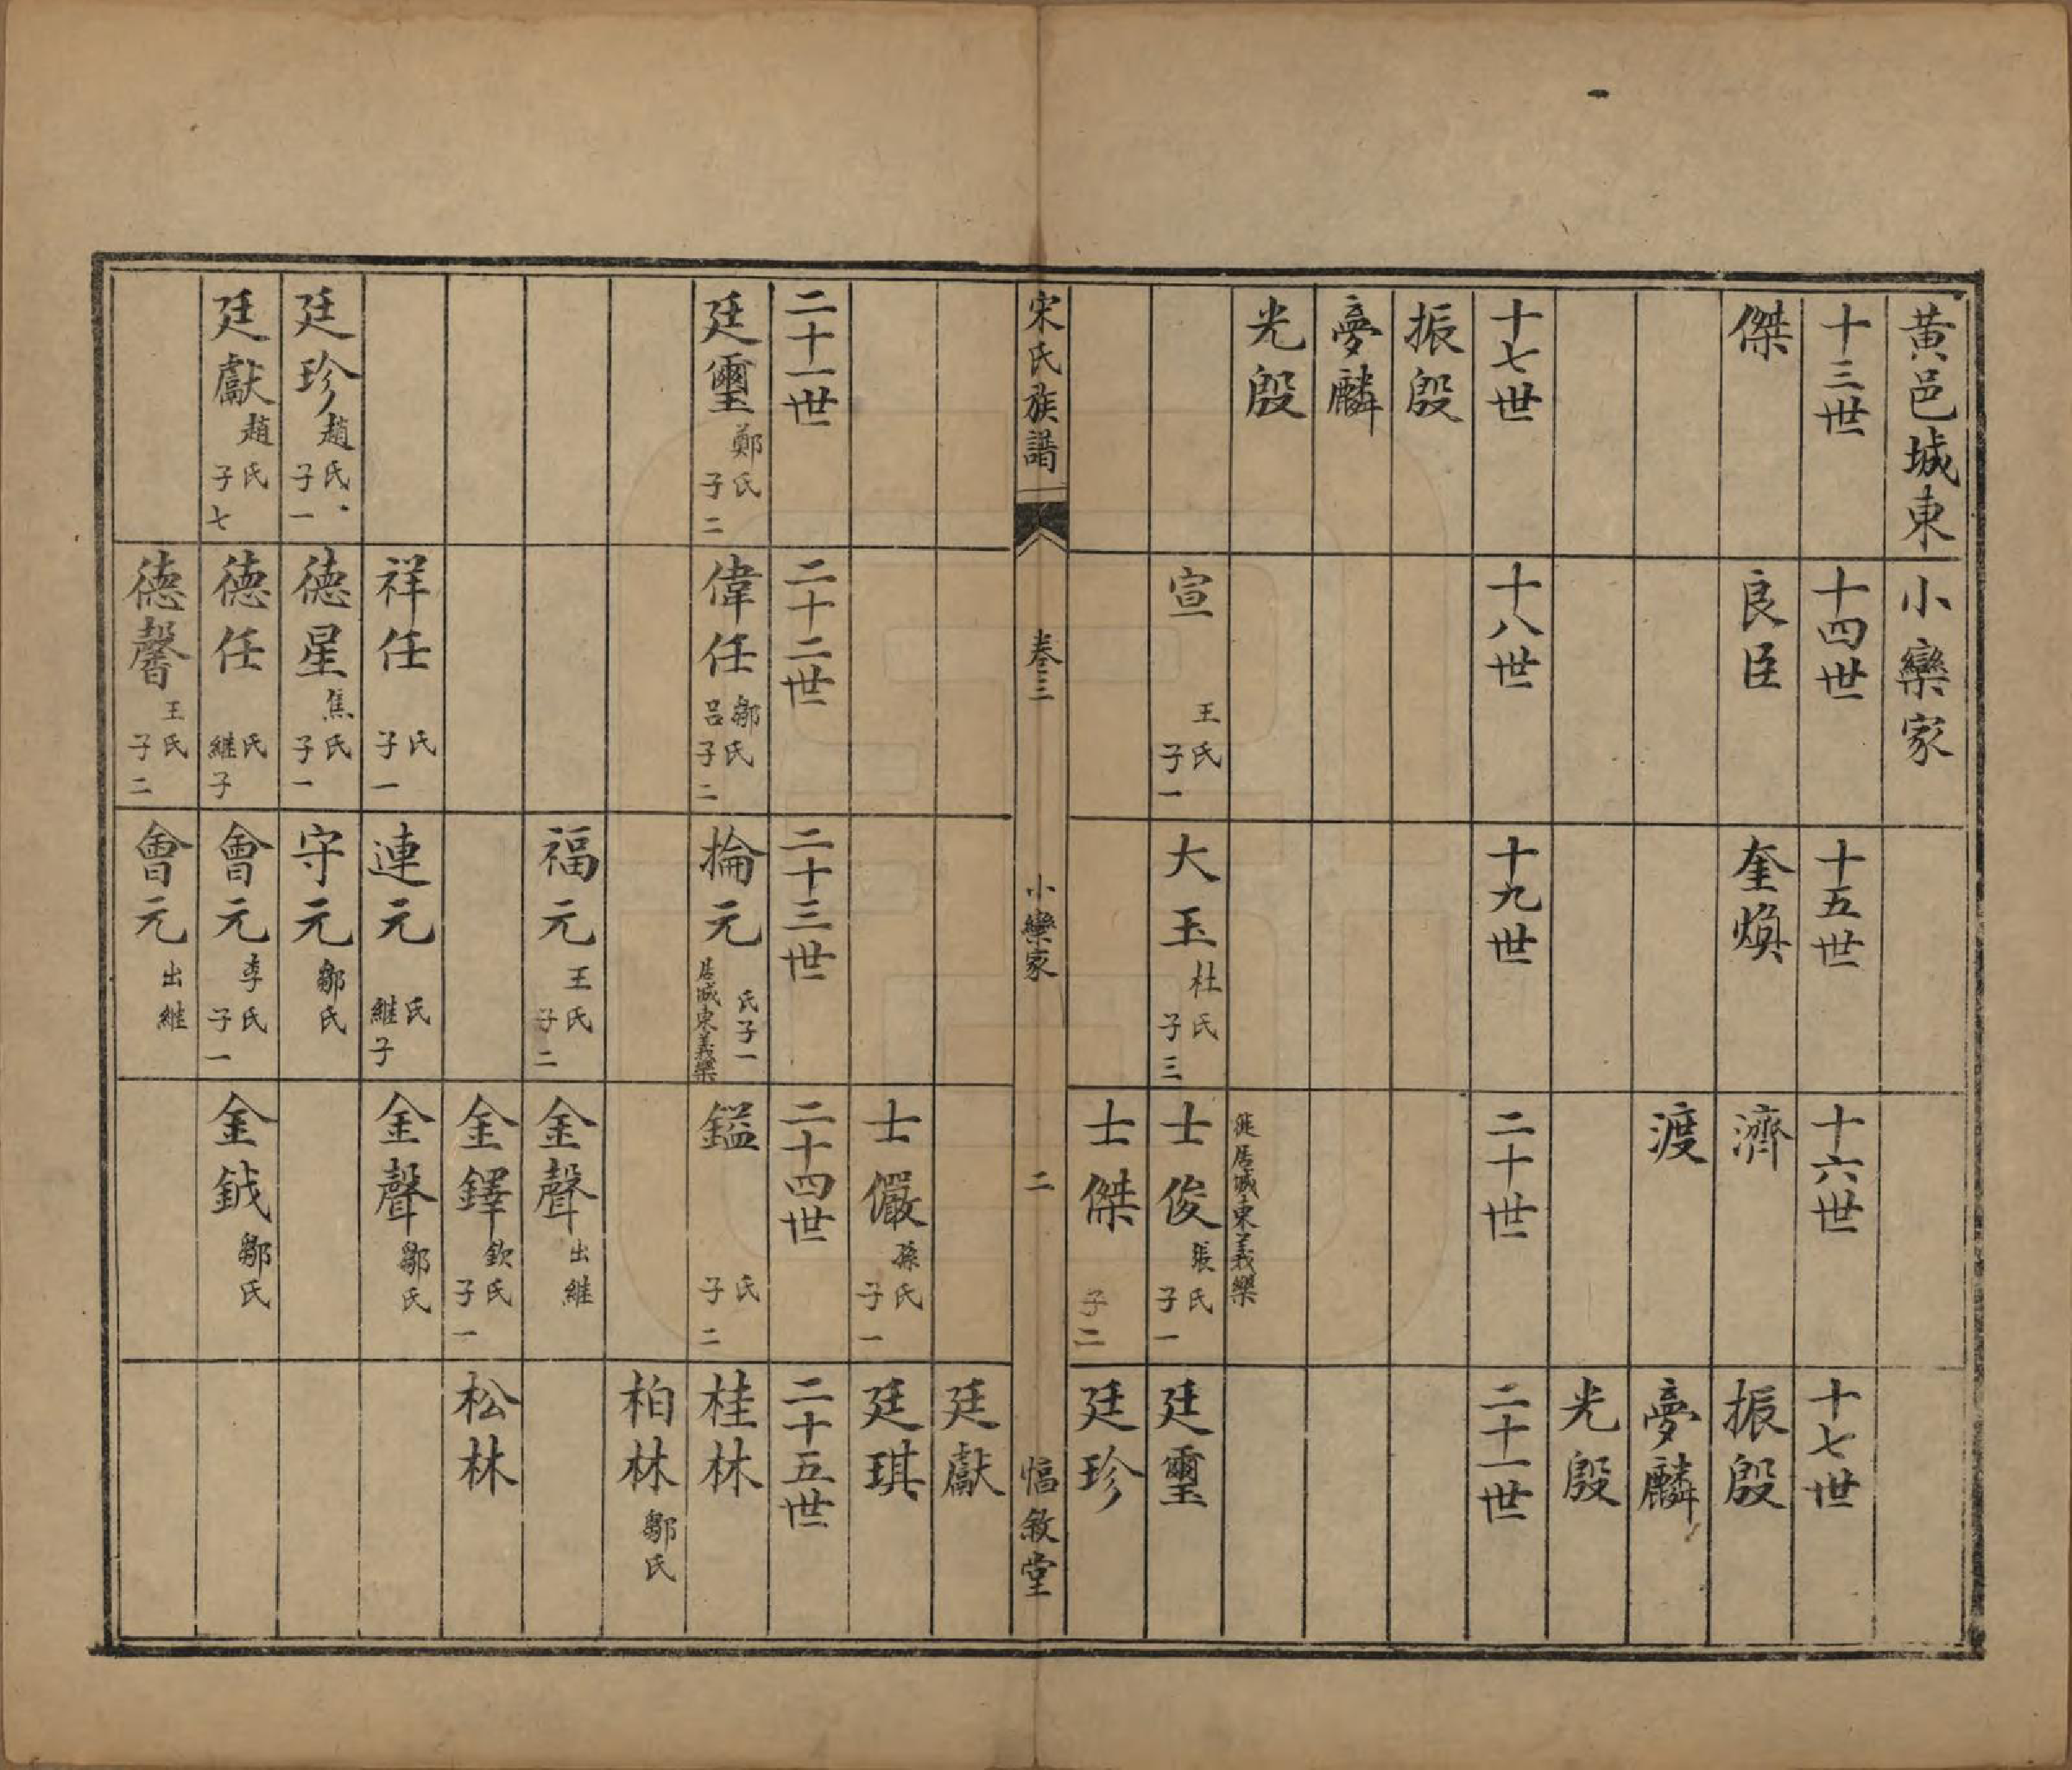 黃邑城東小欒家
十三世 十四世 十五世 十六世 十七世
傑 良臣 奎煥 濟 振殷
渡 夢麟
光殷
十七世 十八世 十九世 二十世 二十一世
振殷
夢麟
光殷 徙居城東義欒
宣 王氏子一 大玉 杜氏子三 士俊 張氏子一 廷璽
士傑 子二 廷珍
宋氏族譜 卷三 小欒家 二 惇敘堂
廷獻
士儼 孫氏子一 廷琪
二十一世 二十二世 二十三世 二十四世 二十五世
廷璽 鄭氏子二 偉任 鄒呂氏子二 掄元 氏子一 居城東義欒 鎰 氏子二 桂林
柏林 鄒氏
福元 王氏子二 金聲 出繼
金鐸 欽氏子一 松林
祥任 氏子一 連元 氏繼子 金聲 鄒氏
廷珍 趙氏子一 德星 焦氏子一 守元 鄒氏
廷獻 趙氏子七 德任 氏繼子 會元 李氏子一 金鉞 鄒氏
德馨 王氏子二 會元 出繼